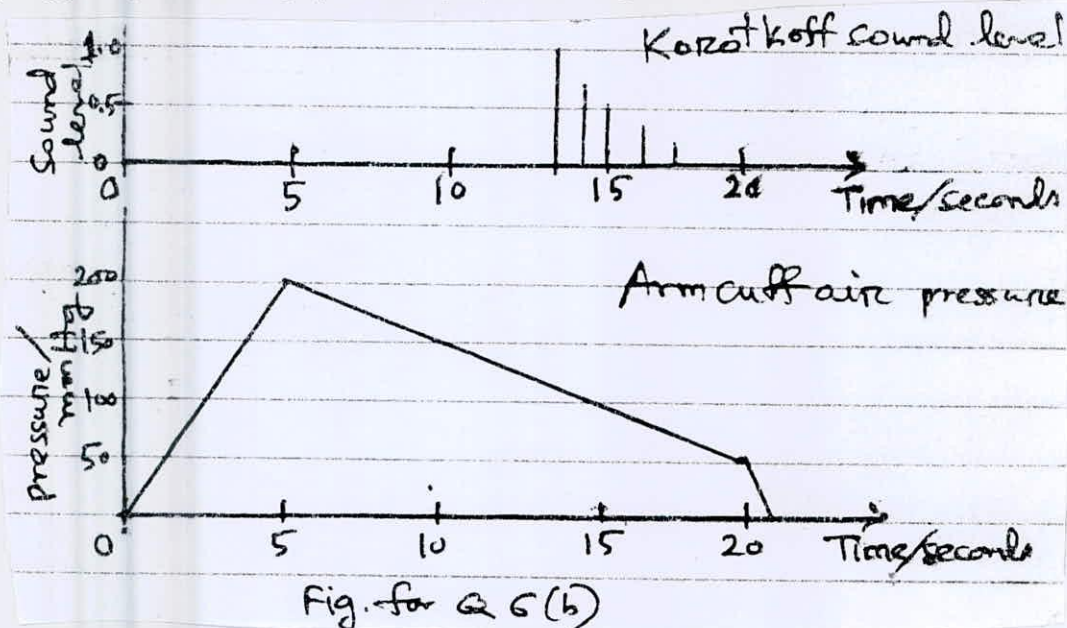 Korotkoff sound level
Sound level
1.0
0.5
0
0 5 10 15 20
Time/seconds
Arm cuff air pressure
pressure/mmHg
200
150
100
50
0 5 10 15 20 Time/seconds
Fig. for Q 6(b)